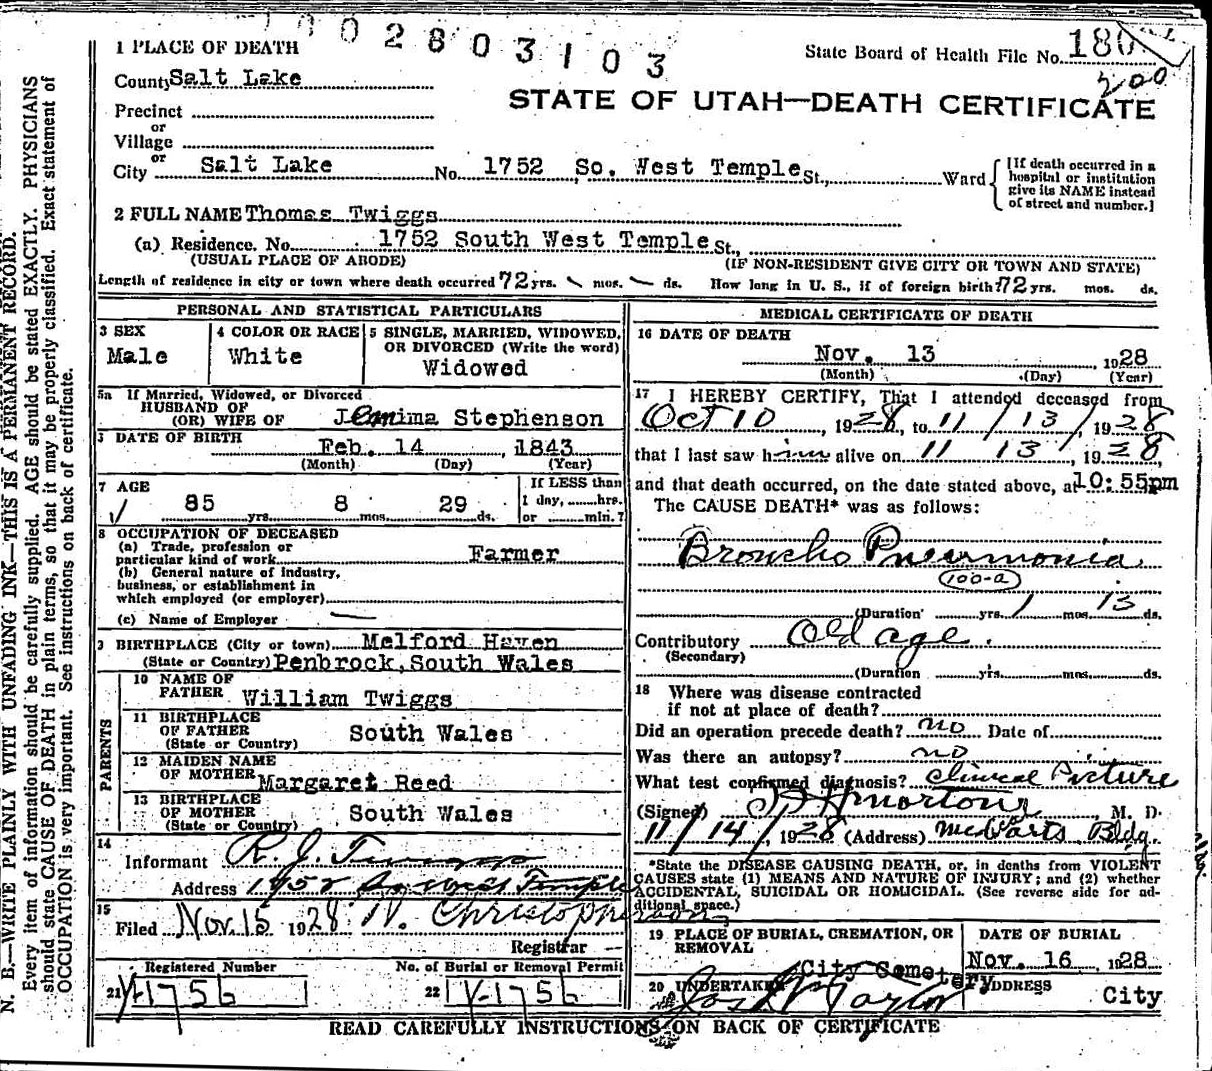 1002803103
1 PLACE OF DEATH
State Board of Health File No. 180
200
County Salt Lake
STATE OF UTAH—DEATH CERTIFICATE
Precinct
or
Village
or
City Salt Lake No. 1752 So. West Temple St., Ward
[If death occurred in a
hospital or institution
give its NAME instead
of street and number.]
2 FULL NAME Thomas Twiggs
(a) Residence. No. 1752 South West Temple St.,
(USUAL PLACE OF ABODE) (IF NON-RESIDENT GIVE CITY OR TOWN AND STATE)
Length of residence in city or town where death occurred 72 yrs. mos. ds. How long in U. S., if of foreign birth? 72 yrs. mos. ds.
PERSONAL AND STATISTICAL PARTICULARS
3 SEX
Male
4 COLOR OR RACE
White
5 SINGLE, MARRIED, WIDOWED,
OR DIVORCED (Write the word)
Widowed
5a If Married, Widowed, or Divorced
HUSBAND OF
(OR) WIFE OF Jemima Stephenson
6 DATE OF BIRTH
Feb. 14, 1843
(Month) (Day) (Year)
7 AGE
85 yrs. 8 mos. 29 ds.
If LESS than
1 day, hrs.
or min.?
8 OCCUPATION OF DECEASED
(a) Trade, profession or
particular kind of work Farmer
(b) General nature of industry,
business, or establishment in
which employed (or employer)
(c) Name of Employer
9 BIRTHPLACE (City or town) Melford Haven
(State or Country) Penbrock, South Wales
PARENTS
10 NAME OF
FATHER William Twiggs
11 BIRTHPLACE
OF FATHER South Wales
(State or Country)
12 MAIDEN NAME
OF MOTHER Margaret Reed
13 BIRTHPLACE
OF MOTHER South Wales
(State or Country)
14
Informant R. J. Twiggs
Address 1752 So West Temple
15
Filed Nov. 15 1928 W. Christopherson
Registrar
Registered Number
21 V-1756
No. of Burial or Removal Permit
22 V-1756
MEDICAL CERTIFICATE OF DEATH
16 DATE OF DEATH
Nov. 13 1928
(Month) (Day) (Year)
17 I HEREBY CERTIFY, That I attended deceased from
Oct 10, 1928, to 11/13/, 1928
that I last saw him alive on 11 13, 1928,
and that death occurred, on the date stated above, at 10:55pm
The CAUSE DEATH* was as follows:
Broncho Pneumonia
100-a
(Duration yrs. 1 mos. 13 ds.
Contributory Old age.
(Secondary)
(Duration yrs. mos. ds.
18 Where was disease contracted
if not at place of death?
Did an operation precede death? no Date of
Was there an autopsy? no
What test confirmed diagnosis? Clinical Picture
(Signed) M. D.
11/14/, 1928 (Address) Bldg.
*State the DISEASE CAUSING DEATH, or, in deaths from VIOLENT
CAUSES state (1) MEANS AND NATURE OF INJURY; and (2) whether
ACCIDENTAL, SUICIDAL OR HOMICIDAL. (See reverse side for ad-
ditional space.)
19 PLACE OF BURIAL, CREMATION, OR
REMOVAL
City Cemetery
DATE OF BURIAL
Nov. 16, 1928
20 UNDERTAKER
Jos Wm Taylor
ADDRESS
City
READ CAREFULLY INSTRUCTIONS ON BACK OF CERTIFICATE
N. B.—WRITE PLAINLY WITH UNFADING INK—THIS IS A PERMANENT RECORD.
Every item of information should be carefully supplied. AGE should be stated EXACTLY. PHYSICIANS
should state CAUSE OF DEATH in plain terms, so that it may be properly classified. Exact statement of
OCCUPATION is very important. See instructions on back of certificate.